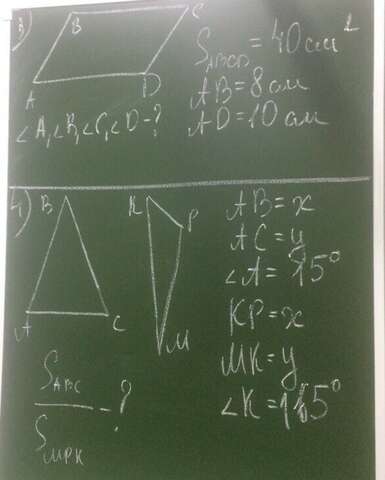 3)
B
C
A
D
S_ABCD = 40 см²
AB = 8 см
AD = 10 см
∠A, ∠B, ∠C, ∠D - ?
4)
B
A
C
K
P
M
AB = x
AC = y
∠A = 15°
KP = x
MK = y
∠K = 165°
S_ABC
S_MPK
- ?